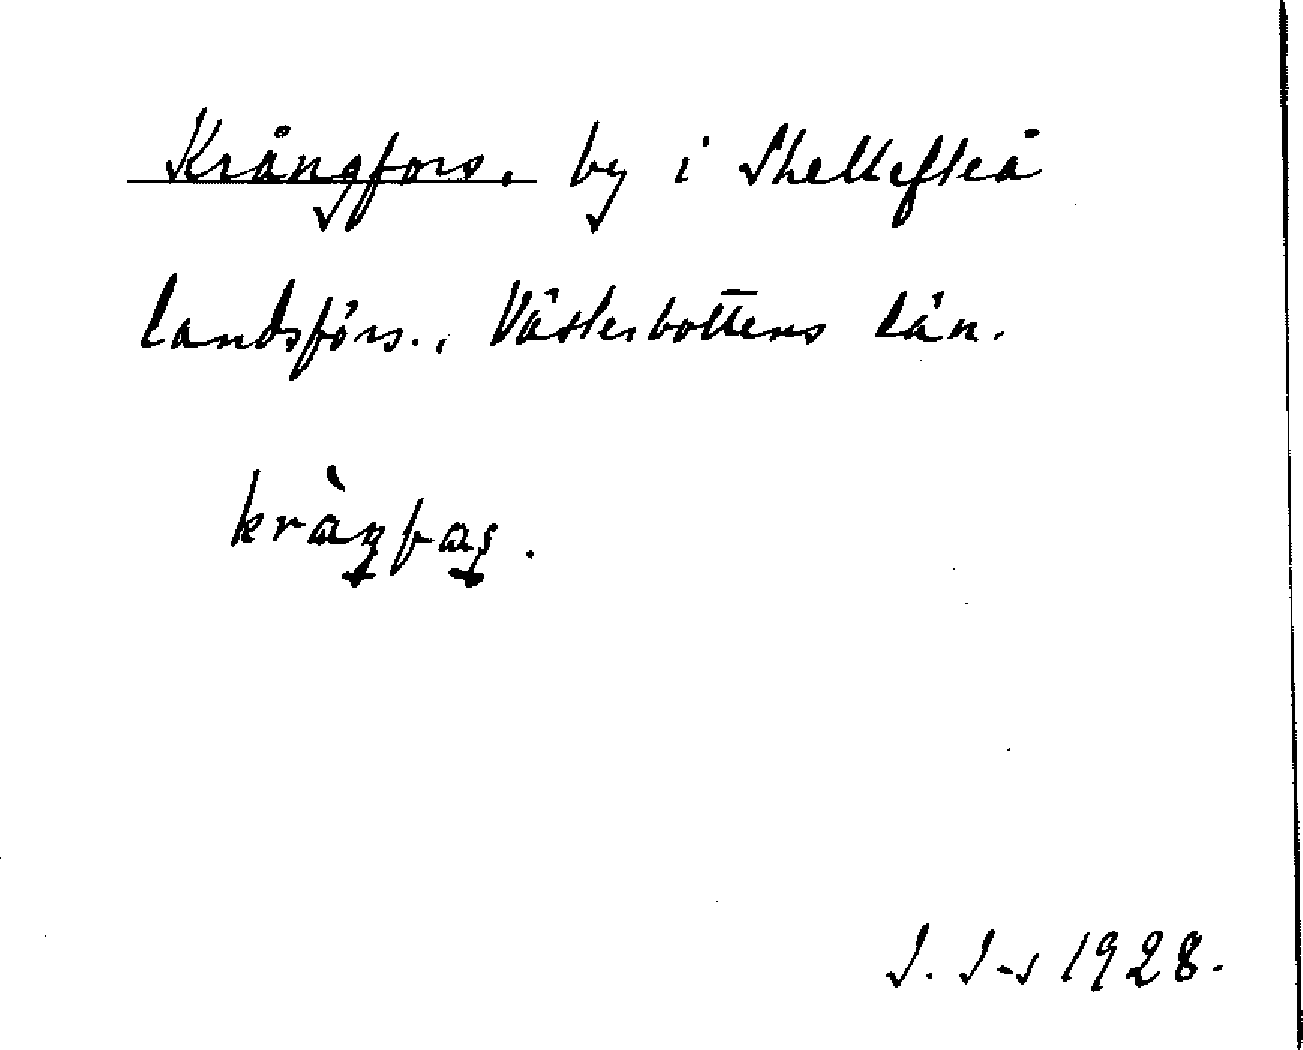 Krångfors, by i Skellefteå
landsförs., Västerbottens län.
kràŋfaş.
J. J-s 1928.